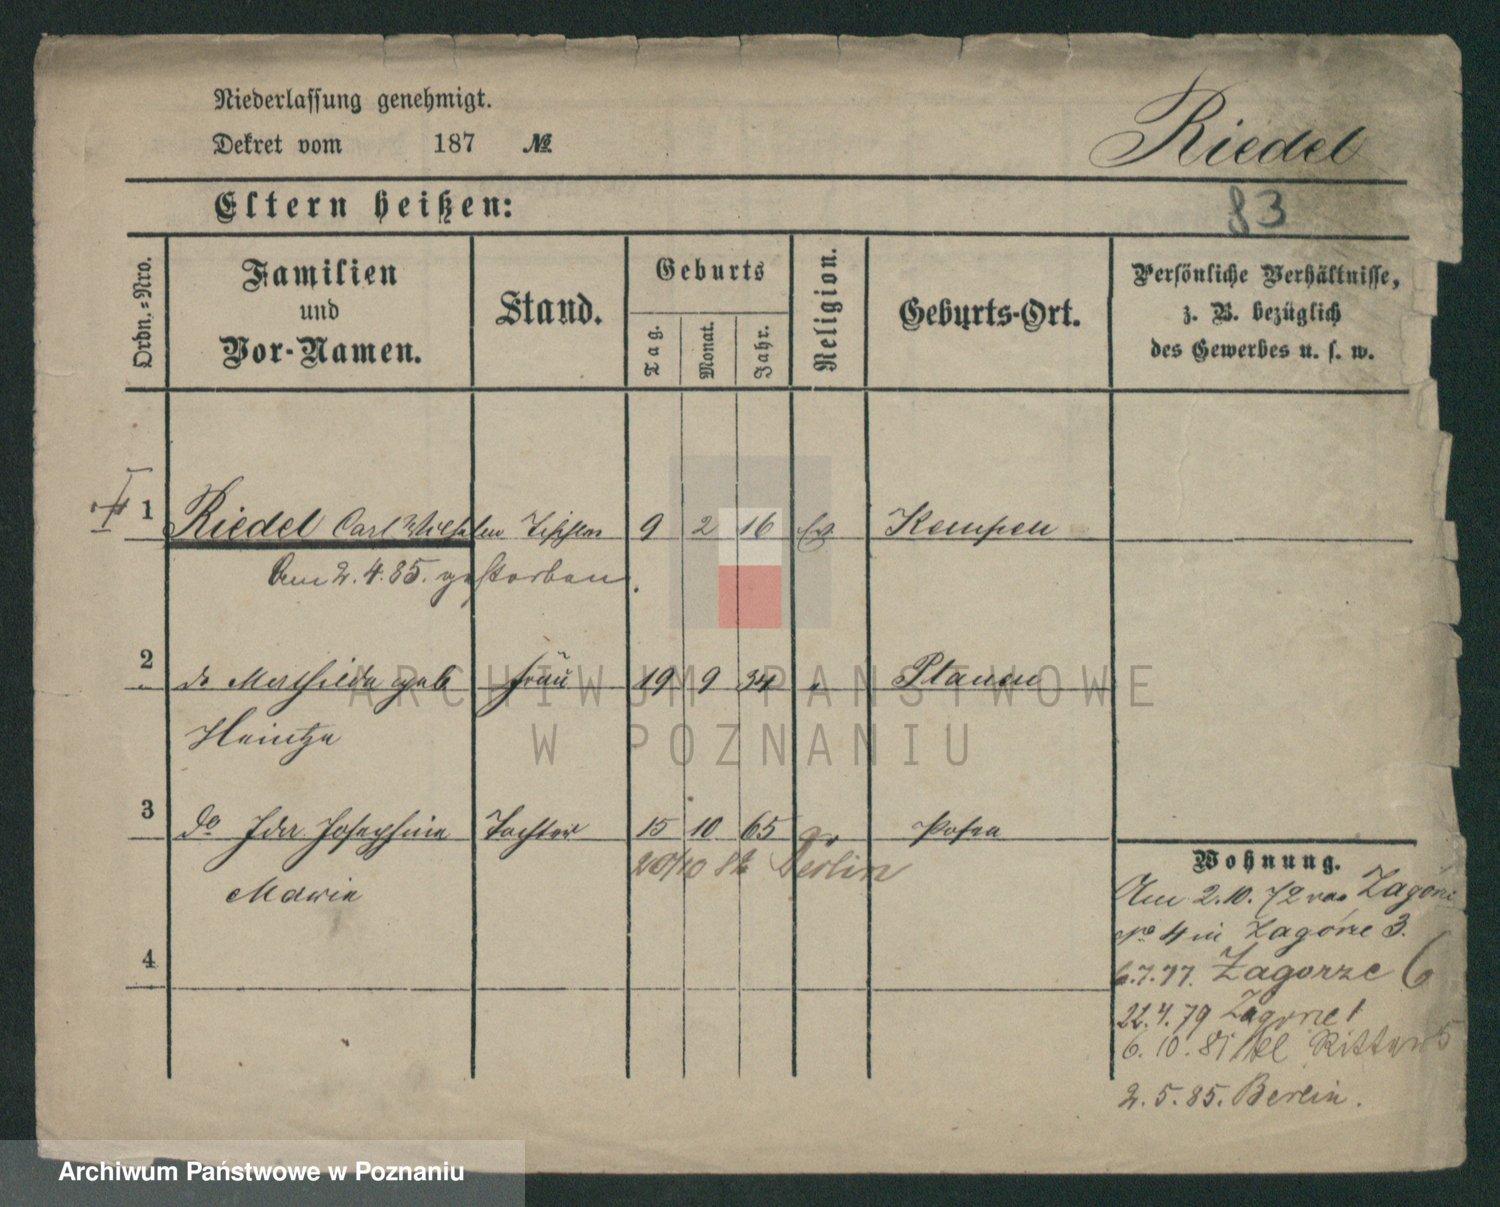 Niederlassung genehmigt.
Dekret vom 187 №
Riedel
Eltern heißen:
83
Ordn.-Nro.
Familien und Vor-Namen.
Stand.
Geburts
Tag.
Monat.
Jahr.
Religion.
Geburts-Ort.
Persönliche Verhältnisse,
z. B. bezüglich
des Gewerbes u. s. w.
1 Riedel Carl Wilhelm Tischler 9 2 16 Ev. Kempen
Am 2.4.85. gestorben.
2 do Mathilde geb Frau 19 9 34 " Plauen
Heintze
3 do Ida Josephine Tochter 15 10 65 Posen
Marie
20/10 Berlin
4
Wohnung.
Am 2.10.72 Zagorze
No 4 in Zagorze 3.
6.7.77. Zagorze 6
22.4.79 Zagorze 1
6.10.81 Kl Ritterst 5
2.5.85. Berlin.
ARCHIWUM PAŃSTWOWE
W POZNANIU
Archiwum Państwowe w Poznaniu